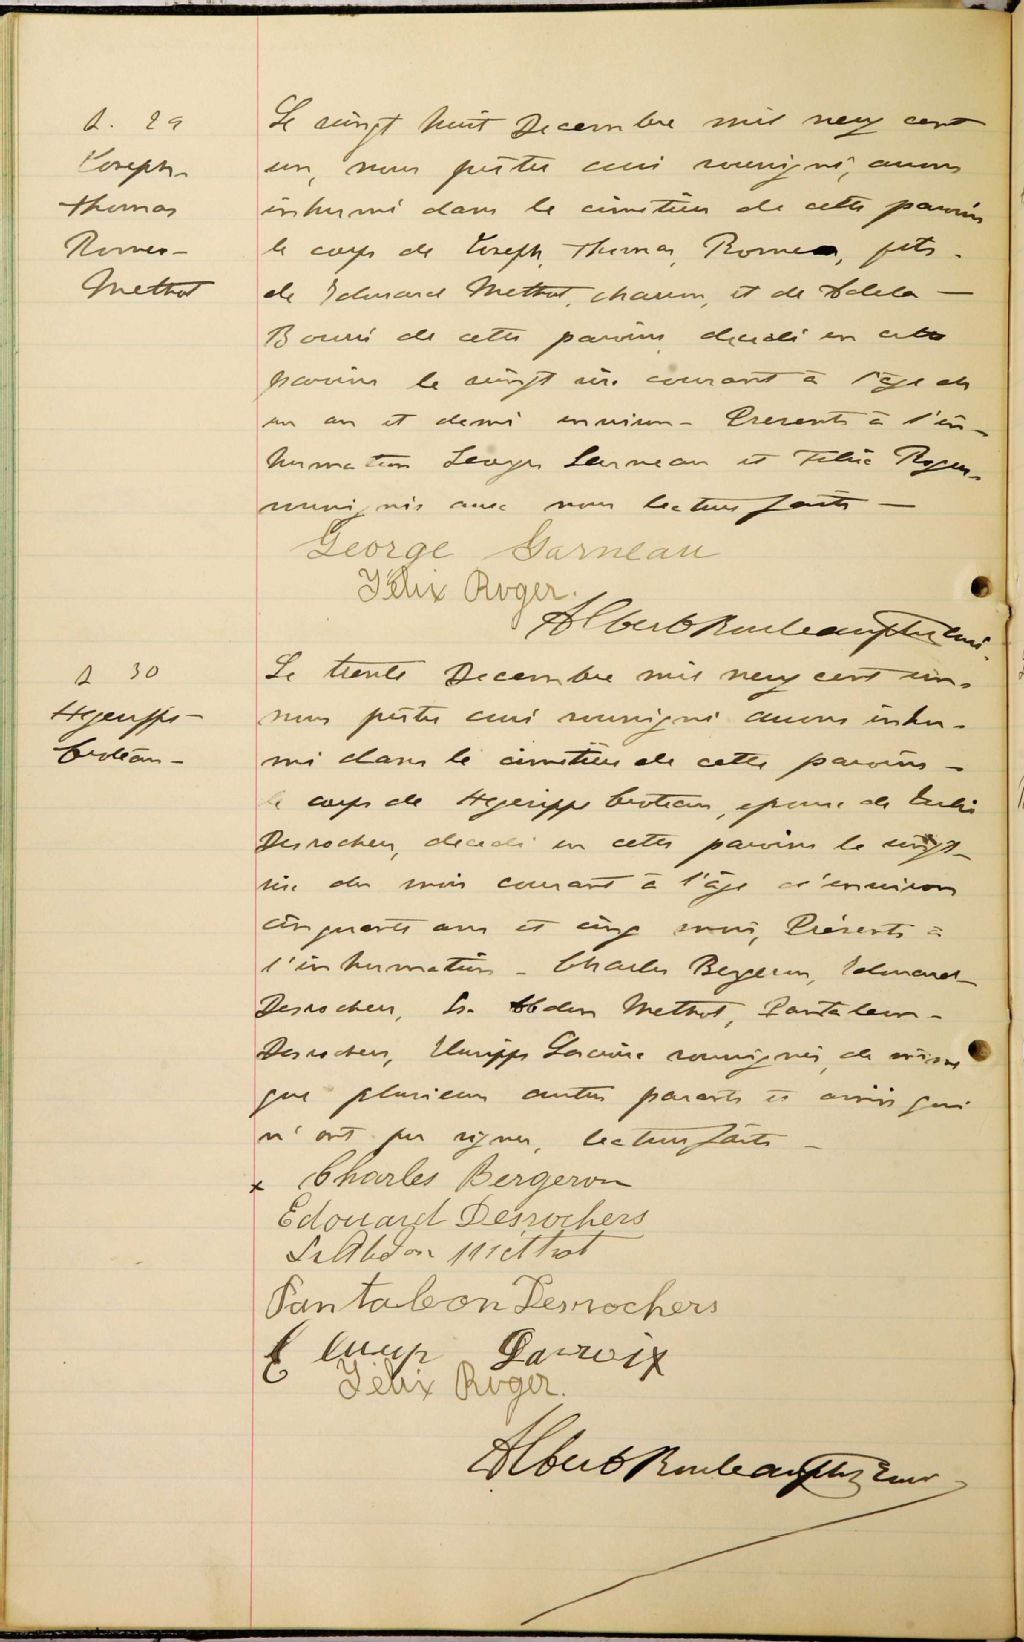 S. 29
Joseph-
Thomas
Romeo-
Methot
Le vingt huit Decembre mil neuf cent
un, nous prêtre curé soussigné, avons
inhumé dans le cimetière de cette paroisse
le corps de Joseph, Thomas, Romeo, fils
de Edouard Methot, charron, et de Adela —
Bourré de cette paroisse decedé en cette
paroisse le vingt six courant à l'âge de
un an et demi environ - Presents à l'in-
humation George Garneau et Felix Roger
soussignés avec nous lecture faite —
George Garneau
Félix Roger.
Albert Rouleau ptre curé.
S 30
Croteau-
Le trente Decembre mil neuf cent un,
nous prêtre curé soussigné avons inhu-
mé dans le cimetière de cette paroisse -
le corps de Croteau, epouse de
Desrochers, decedé en cette paroisse le vingt-
six du mois courant à l'âge d'environ
cinquante ans et cinq mois, Présents à
l'inhumation - Charles Bergeron, Edouard
Desrochers, Ls. Abdon Methot, Pantaleon-
Desrochers, Lacroix soussignés, de même
que plusieurs autres parents et amis qui
n'ont pu signer, lecture faite -
x Charles Bergeron
Edouard Desrochers
Ls Abdon Méthot
Pantaleon Desrochers
Lacroix
Félix Roger.
Albert Rouleau ptre Curé